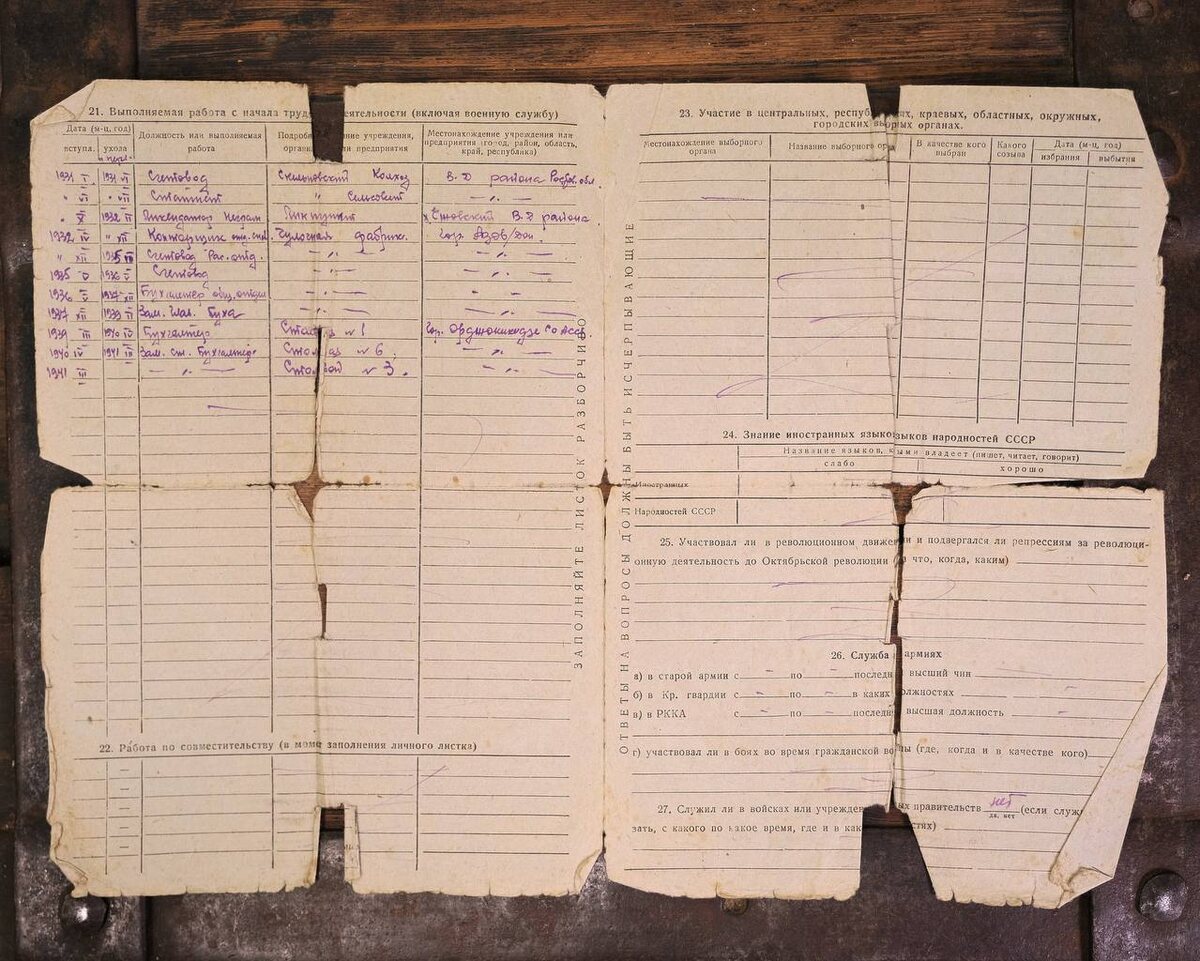 21. Выполняемая работа с начала труд еятельности (включая военную службу)
Дата (м-ц, год)
вступл.
ухода
Должность или выполняемая работа
Подроб ние учреждения,
орган ли предприятия
Местонахождение учреждения или
предприятия (город, район, область,
край, республика)
1931 V 1931 VI Счетовод Колхоз В-Д района Ростов. обл.
" VI " VII " Сельсовет — " —
" X 1932 II Ликвидатор Ликпункт В-Д района
1932 IV " XII Конторщик Чулочная фабрика. гор. Азов/Дон.
" XII 1935 Счетовод — " — — " —
1935 V 1936 V Счетовод — " — — " —
1936 V 1937 XII Бухгалтер общ. отдел — " — — " —
1937 XII 1939 Зам. Глав. Буха — " — — " —
1939 III 1940 IV Бухгалтер Сто №1 гор. Орджоникидзе СО АССР.
1940 IV 1941 III Зам. ст. Бухгалтер. №6 — " —
1941 III — " — Сто ой №3. — " —
22. Работа по совместительству (в моме заполнения личного листка)
ЗАПОЛНЯЙТЕ ЛИСТОК РАЗБОРЧИВО
ОТВЕТЫ НА ВОПРОСЫ ДОЛЖНЫ БЫТЬ ИСЧЕРПЫВАЮЩИЕ
23. Участие в центральных, респуб их, краевых, областных, окружных,
городских выборных органах.
Местонахождение выборного
органа
Название выборного орга
В качестве кого
выбран
Какого
созыва
Дата (м-ц, год)
избрания
выбытия
24. Знание иностранных языко зыков народностей СССР
Название языков, ыми владеет (пишет, читает, говорит)
слабо
хорошо
Иностранных
Народностей СССР
25. Участвовал ли в революционном движе и и подвергался ли репрессиям за революци-
онную деятельность до Октябрьской революции ( а что, когда, каким)
26. Служба армиях
а) в старой армии с – по – последн высший чин
б) в Кр. гвардии с – по – в каких олжностях –
в) в РККА с – по – последн высшая должность –
г) участвовал ли в боях во время гражданской во ны (где, когда и в качестве кого)
27. Служил ли в войсках или учрежде ых правительств нет (если служ
да, нет
зать, с какого по какое время, где и в как стях)